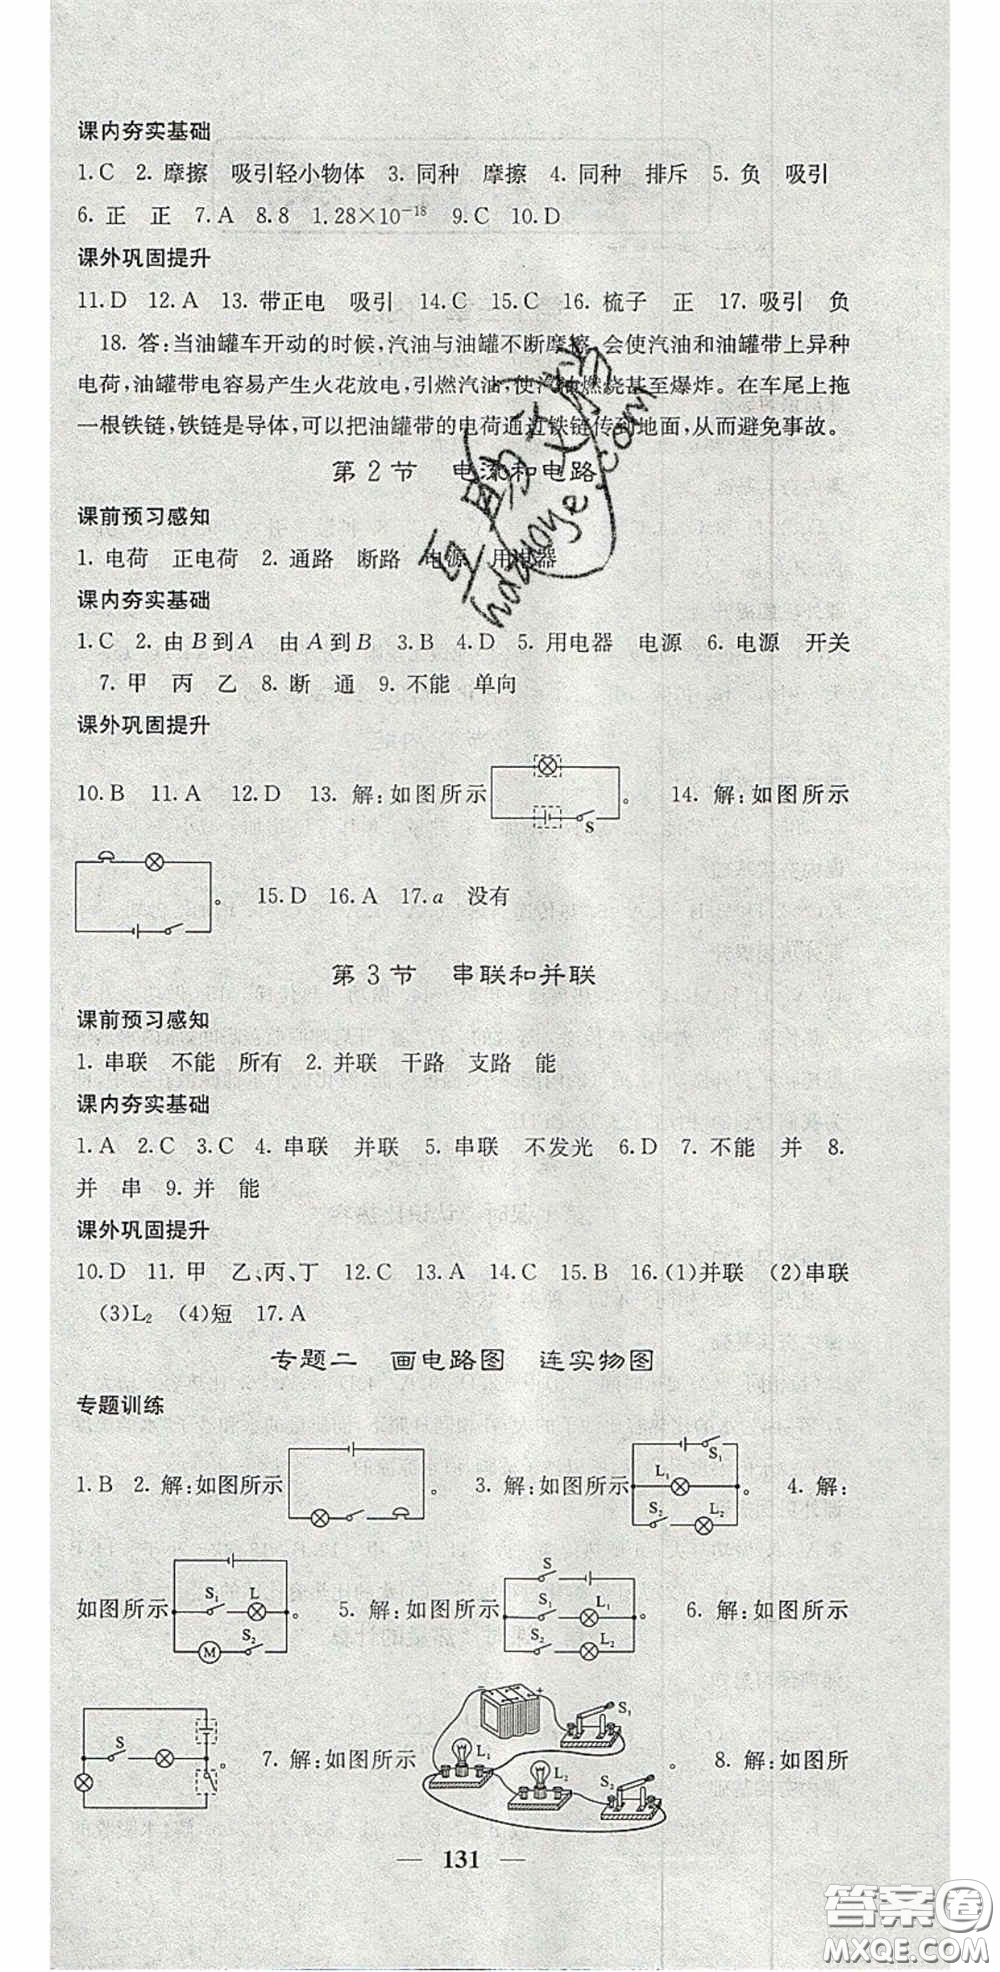 课内夯实基础
1.C 2. 摩擦 吸引轻小物体 3. 同种 摩擦 4. 同种 排斥 5. 负 吸引
6. 正 正 7.A 8.8 1.28×10⁻¹⁸ 9.C 10.D
课外巩固提升
11.D 12.A 13. 带正电 吸引 14.C 15.C 16. 梳子 正 17. 吸引 负
18. 答:当油罐车开动的时候,汽油与油罐不断摩擦,会使汽油和油罐带上异种
电荷,油罐带电容易产生火花放电,引燃汽油,使汽油燃烧甚至爆炸。在车尾上拖
一根铁链,铁链是导体,可以把油罐带的电荷通过铁链传到地面,从而避免事故。
第2节 电流和电路
课前预习感知
1. 电荷 正电荷 2. 通路 断路 电源 用电器
课内夯实基础
1.C 2. 由B到A 由A到B 3.B 4.D 5. 用电器 电源 6. 电源 开关
7. 甲 丙 乙 8. 断 通 9. 不能 单向
课外巩固提升
10.B 11.A 12.D 13. 解:如图所示 S 。 14. 解:如图所示
。 15.D 16.A 17.a 没有
第3节 串联和并联
课前预习感知
1. 串联 不能 所有 2. 并联 干路 支路 能
课内夯实基础
1.A 2.C 3.C 4. 串联 并联 5. 串联 不发光 6.D 7. 不能 并 8.
并 串 9. 并 能
课外巩固提升
10.D 11. 甲 乙、丙、丁 12.C 13.A 14.C 15.B 16.(1)并联 (2)串联
(3)L₂ (4)短 17.A
专题二 画电路图 连实物图
专题训练
1.B 2. 解:如图所示 。 3. 解:如图所示 S₁ L₁ S₂ L₂ 。 4. 解:
如图所示 S₁ L S₂ M 。 5. 解:如图所示 S L₁ S₁ S₂ L₂ 。 6. 解:如图所示
S 。 7. 解:如图所示 − + S₁ L₁ L₂ S₂ 。 8. 解:如图所
— 131 —
互助文房
hdzuoye.com
答案圈
MXQE.COM